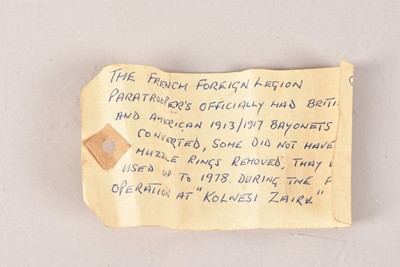 THE FRENCH FOREIGN LEGION
PARATROOPER'S OFFICIALLY HAD BRITI
AND AMERICAN 1913/1917 BAYONETS
CONVERTED, SOME DID NOT HAVE
MUZZLE RINGS REMOVED, THAY
USED UP TO 1978. DURING THE
OPERATION AT "KOLWESI ZAIRE"